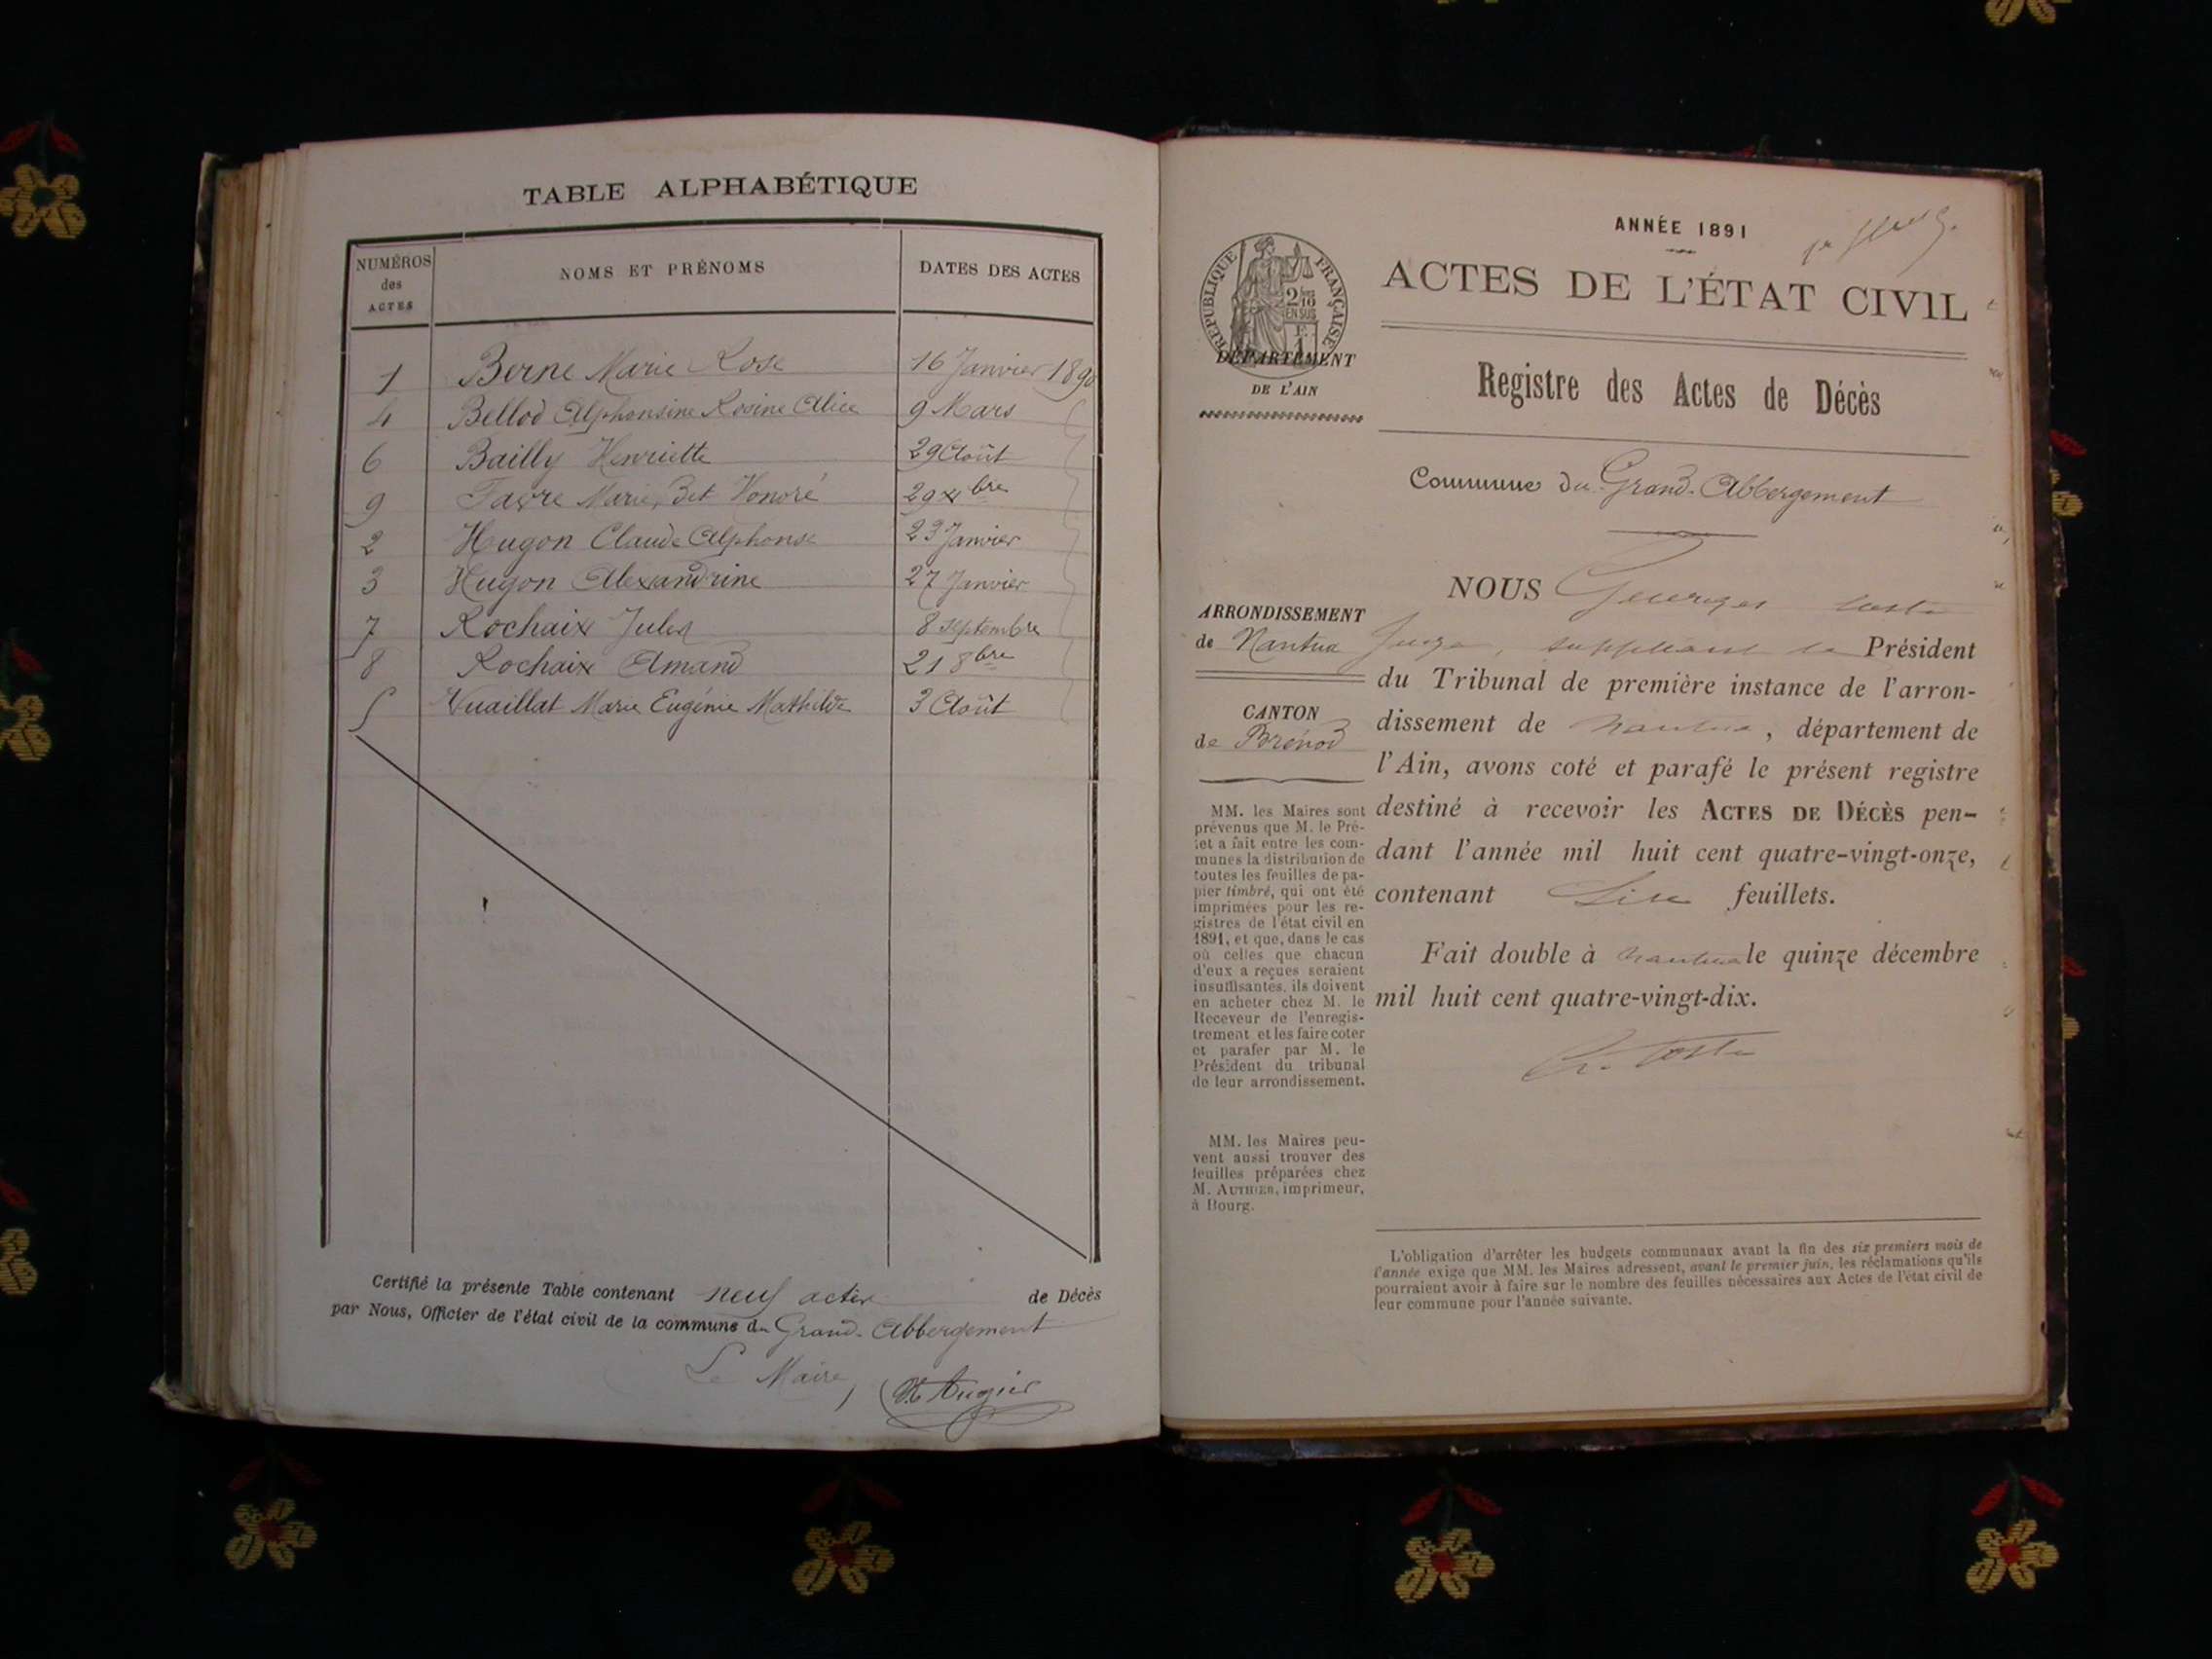 TABLE ALPHABÉTIQUE
NUMÉROS des ACTES NOMS ET PRÉNOMS DATES DES ACTES
1 Berne Marie Rose 16 Janvier 1890
4 Bellod Alphonsine Rosine Alice 9 Mars
6 Bailly Henriette 29 Août
9 Favre Marie, Bet Honoré 29 xbre
2 Hugon Claude Alphonse 23 Janvier
3 Hugon Alexandrine 27 Janvier
7 Rochaix Jules 8 septembre
8 Rochaix Amand 21 8bre
5 Vuaillat Marie Eugénie Mathilde 3 Août
Certifié la présente Table contenant neuf actes de Décès
par Nous, Officier de l'état civil de la commune du Grand-Abbergement
Le Maire,
Augier
ANNÉE 1891
ACTES DE L'ÉTAT CIVIL
RÉPUBLIQUE FRANÇAISE
2/10
EN SUS
DÉPARTEMENT
DE L'AIN
Registre des Actes de Décès
Commune du Grand-Abbergement
ARRONDISSEMENT
de Nantua
CANTON
de Brénod
MM. les Maires sont
prévenus que M. le Pré-
fet a fait entre les com-
munes la distribution de
toutes les feuilles de pa-
pier timbré, qui ont été
imprimées pour les re-
gistres de l'état civil en
1891, et que, dans le cas
où celles que chacun
d'eux a reçues seraient
insuffisantes, ils doivent
en acheter chez M. le
Receveur de l'enregis-
trement et les faire coter
et parafer par M. le
Président du tribunal
de leur arrondissement.
MM. les Maires peu-
vent aussi trouver des
feuilles préparées chez
M. AUTHIER, imprimeur,
à Bourg.
NOUS Georges Coste
Juge, suppléant le Président
du Tribunal de première instance de l'arron-
dissement de Nantua, département de
l'Ain, avons coté et parafé le présent registre
destiné à recevoir les ACTES DE DÉCÈS pen-
dant l'année mil huit cent quatre-vingt-onze,
contenant feuillets.
Fait double à Nantua le quinze décembre
mil huit cent quatre-vingt-dix.
G. Coste
L'obligation d'arrêter les budgets communaux avant la fin des six premiers mois de
l'année exige que MM. les Maires adressent, avant le premier juin, les réclamations qu'ils
pourraient avoir à faire sur le nombre des feuilles nécessaires aux Actes de l'état civil de
leur commune pour l'année suivante.